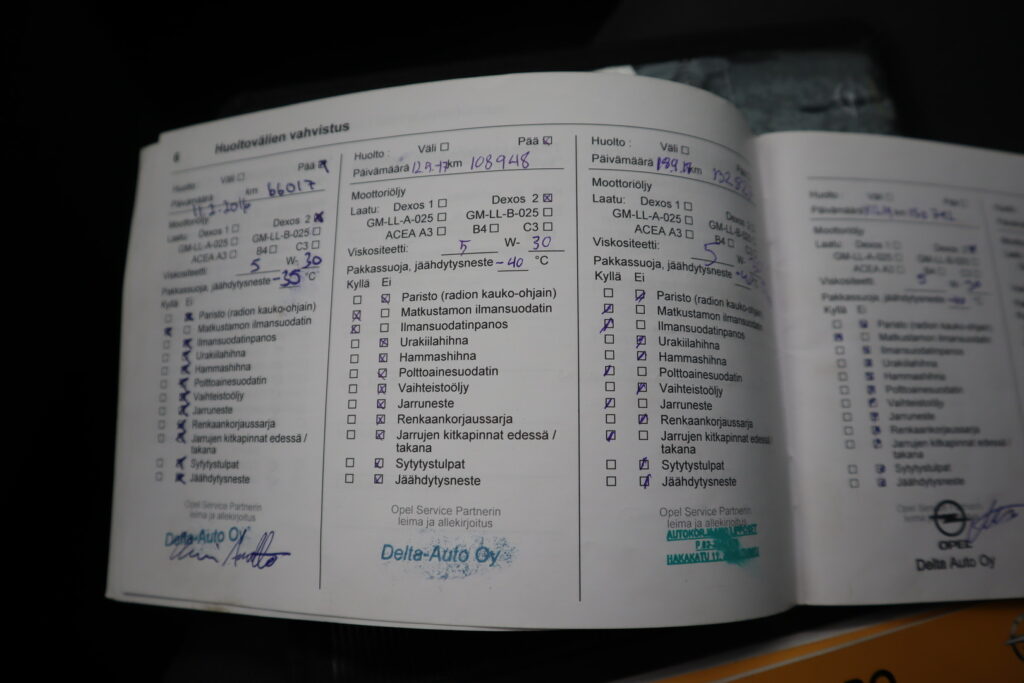 6 Huoltovälien vahvistus
Huolto : Väli ☐ Pää ☒
Päivämäärä 11.2.2016 km 66017
Moottoriöljy
Laatu: Dexos 1 ☐ Dexos 2 ☒
GM-LL-A-025 ☐ GM-LL-B-025 ☐
ACEA A3 ☐ B4 ☐ C3 ☐
Viskositeetti: 5 W- 30
Pakkassuoja, jäähdytysneste -35 °C
Kyllä Ei
☐ ☒ Paristo (radion kauko-ohjain)
☒ ☐ Matkustamon ilmansuodatin
☐ ☒ Ilmansuodatinpanos
☐ ☒ Urakiilahihna
☐ ☒ Hammashihna
☐ ☒ Polttoainesuodatin
☐ ☒ Vaihteistoöljy
☐ ☒ Jarruneste
☐ ☒ Renkaankorjaussarja
☐ ☒ Jarrujen kitkapinnat edessä /
takana
☐ ☒ Sytytystulpat
☐ ☒ Jäähdytysneste
Opel Service Partnerin
leima ja allekirjoitus
Delta-Auto Oy
Huolto : Väli ☐ Pää ☒
Päivämäärä 12.9.17 km 108948
Moottoriöljy
Laatu: Dexos 1 ☐ Dexos 2 ☒
GM-LL-A-025 ☐ GM-LL-B-025 ☐
ACEA A3 ☐ B4 ☐ C3 ☐
Viskositeetti: 5 W- 30
Pakkassuoja, jäähdytysneste -40 °C
Kyllä Ei
☐ ☒ Paristo (radion kauko-ohjain)
☒ ☐ Matkustamon ilmansuodatin
☒ ☐ Ilmansuodatinpanos
☐ ☒ Urakiilahihna
☐ ☒ Hammashihna
☐ ☒ Polttoainesuodatin
☐ ☒ Vaihteistoöljy
☐ ☒ Jarruneste
☐ ☒ Renkaankorjaussarja
☐ ☒ Jarrujen kitkapinnat edessä /
takana
☐ ☒ Sytytystulpat
☐ ☒ Jäähdytysneste
Opel Service Partnerin
leima ja allekirjoitus
Delta-Auto Oy
Huolto : Väli ☐ Pää
Päivämäärä km
Moottoriöljy
Laatu: Dexos 1 ☐ Dexos
GM-LL-A-025 ☐ GM-LL-B
ACEA A3 ☐ B4 ☐
Viskositeetti: 5 W-
Pakkassuoja, jäähdytysneste
Kyllä Ei
☐ ☒ Paristo (radion kauko-ohjain)
☒ ☐ Matkustamon ilmansuodatin
☒ ☐ Ilmansuodatinpanos
☐ ☒ Urakiilahihna
☐ ☒ Hammashihna
☒ ☐ Polttoainesuodatin
☐ ☒ Vaihteistoöljy
☒ ☐ Jarruneste
☐ ☒ Renkaankorjaussarja
☒ ☐ Jarrujen kitkapinnat edessä /
takana
☐ ☒ Sytytystulpat
☐ ☒ Jäähdytysneste
Opel Service Partnerin
leima ja allekirjoitus
HAKAKATU
Huolto : Väli ☐ Pää
Päivämäärä km
Moottoriöljy
Laatu: Dexos 1 ☐ Dexos
GM-LL-A-025 ☐ GM-LL-B-025
ACEA A3 ☐ B4 ☐ C3
Viskositeetti: 5 W-
Pakkassuoja, jäähdytysneste
Kyllä Ei
☐ ☒ Paristo (radion kauko-ohjain)
☒ ☐ Matkustamon ilmansuodatin
☐ ☒ Ilmansuodatinpanos
☐ ☒ Urakiilahihna
☐ ☒ Hammashihna
☐ ☒ Polttoainesuodatin
☐ ☒ Vaihteistoöljy
☐ ☒ Jarruneste
☐ ☒ Renkaankorjaussarja
☐ ☒ Jarrujen kitkapinnat edessä /
takana
☐ ☒ Sytytystulpat
☐ ☒ Jäähdytysneste
OPEL
Delta Auto Oy